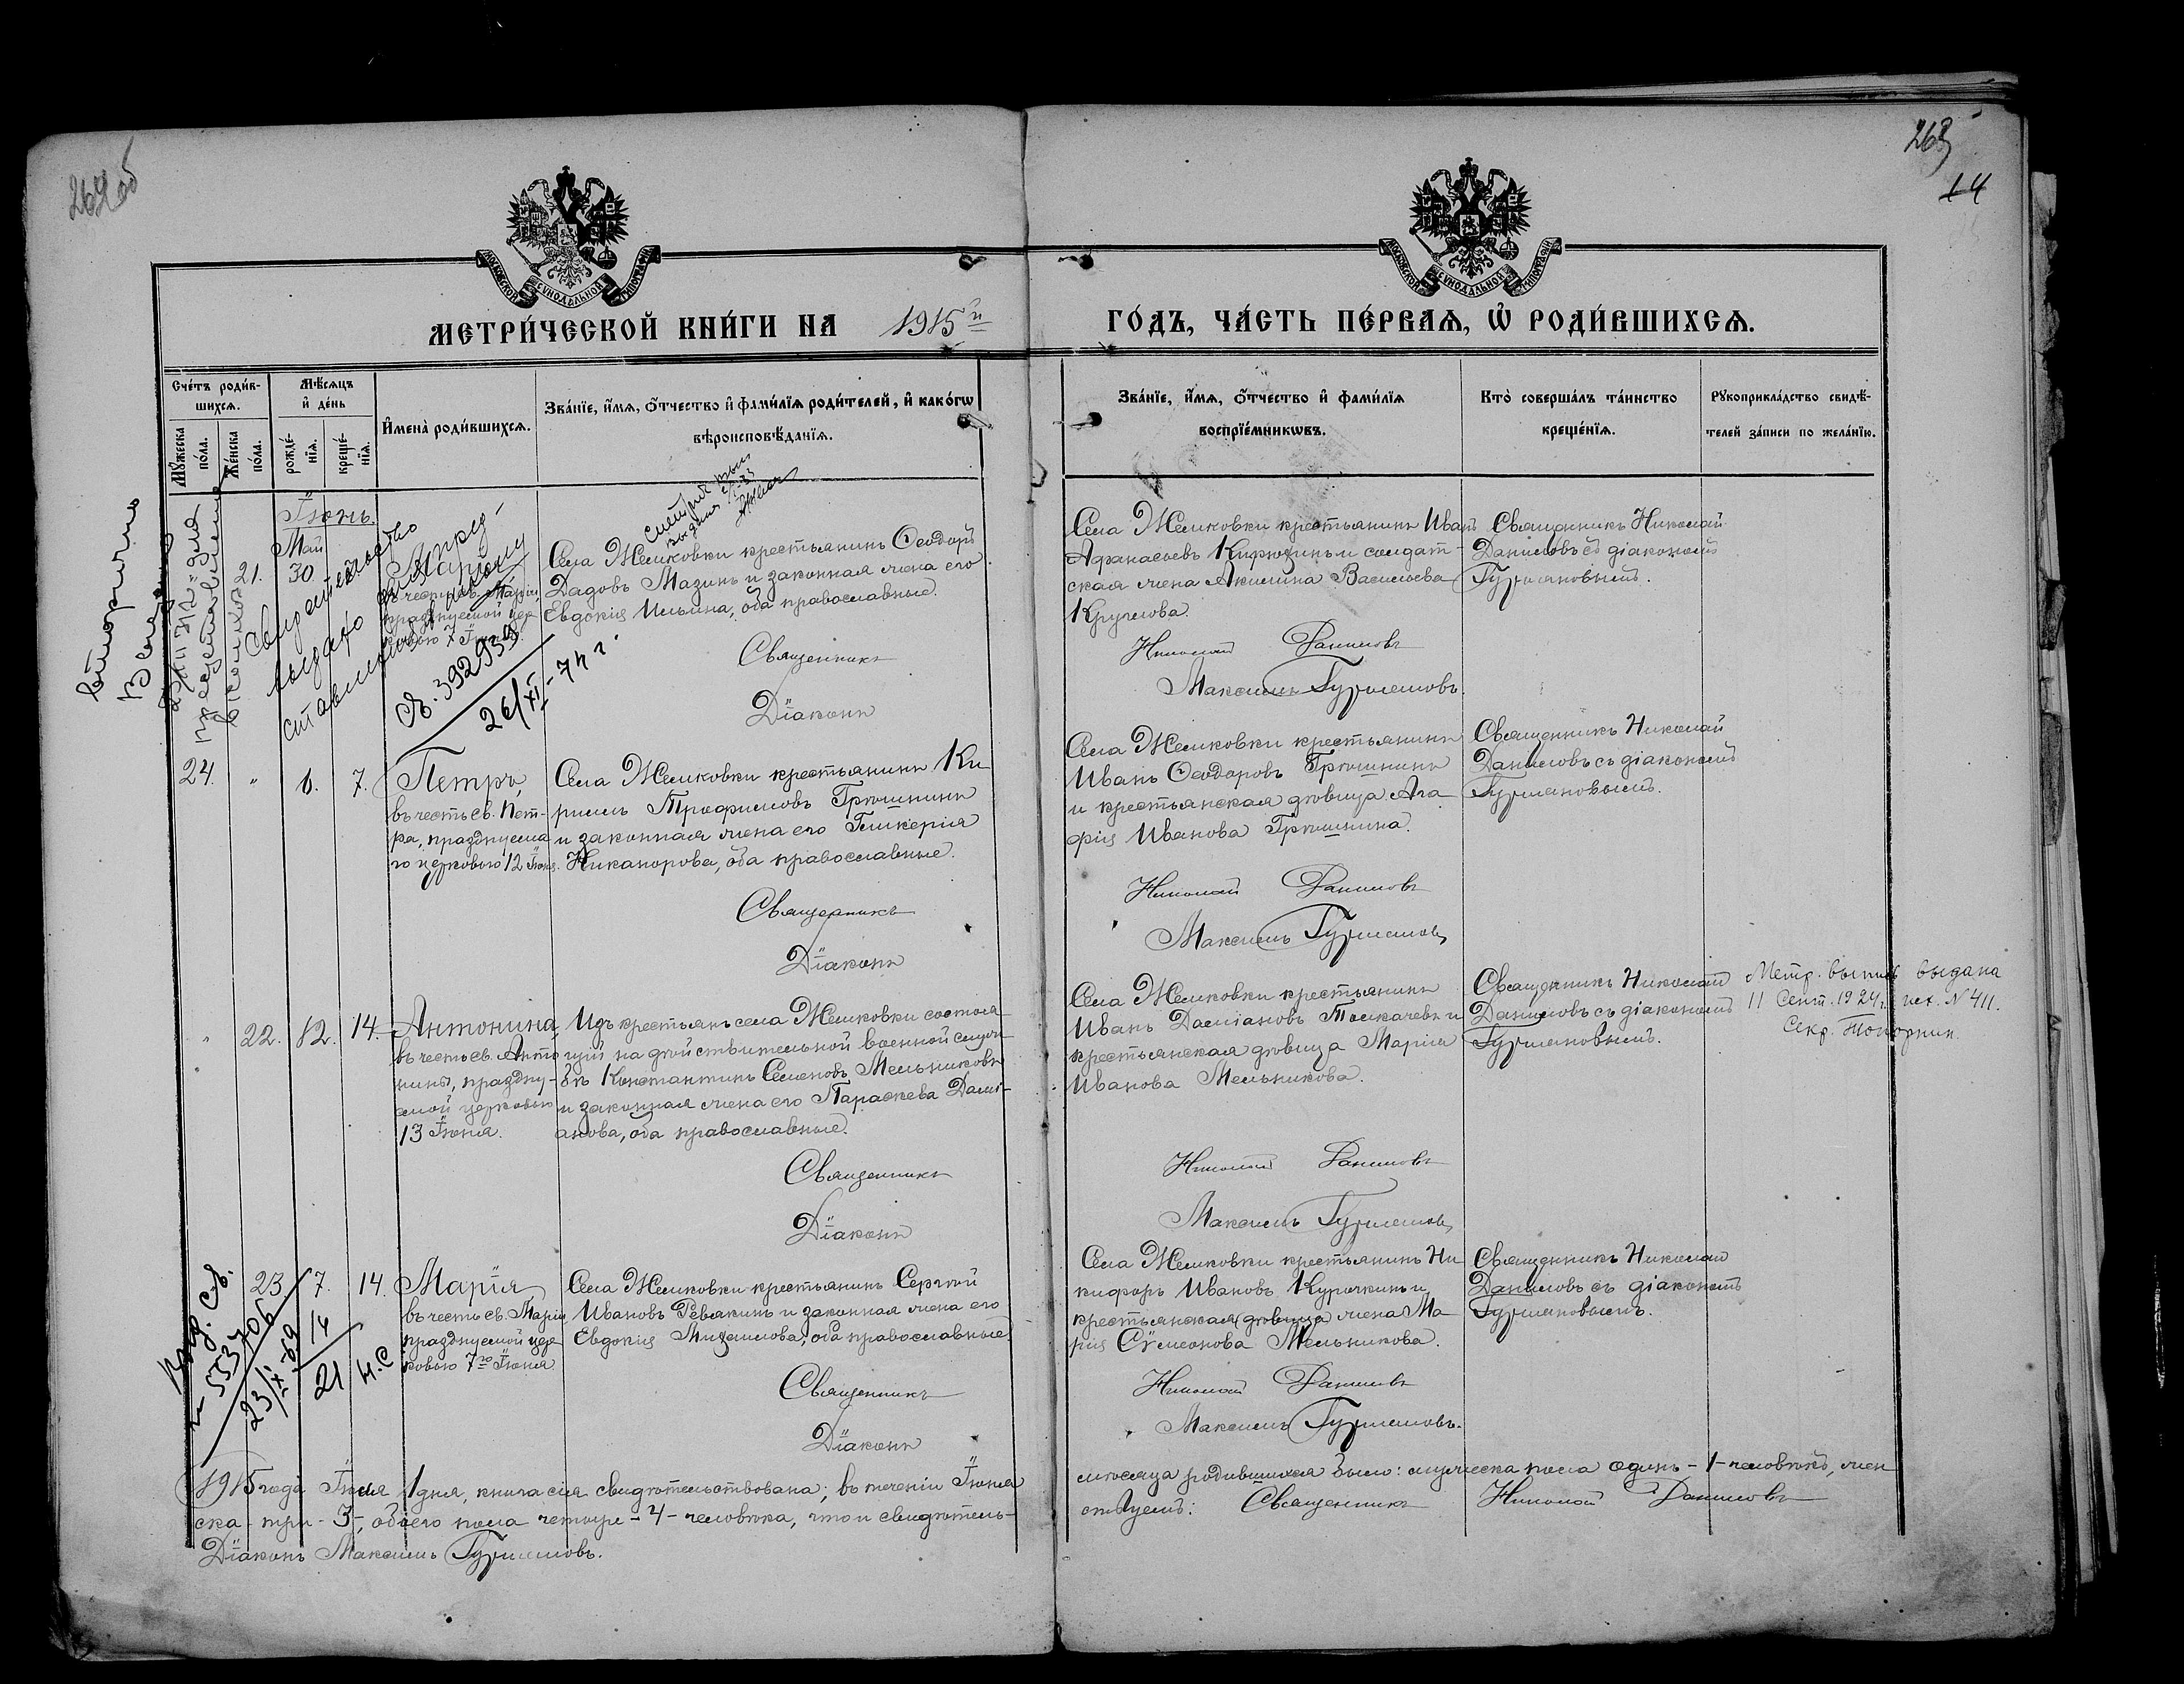 264 об
265
14
МОСКОВСКОЙ СѴНОДАЛЬНОЙ ТИПОГРАФІИ
МОСКОВСКОЙ СѴНОДАЛЬНОЙ ТИПОГРАФІИ
МЕТРИ́ЧЕСКОЙ КНИ́ГИ НА 1915й ГО́ДЪ, ЧА́СТЬ ПЕ́РВАѦ, Ѡ҆ РОДИ́ВШИХСѦ.
Сче́тъ роди́в-
шихсѧ.
Мꙋ́жеска по́ла.
Же́нска по́ла.
Мѣ́сѧцъ
и҆ де́нь
рожде́-
нїѧ.
креще́-
нїѧ.
И҆мена̀ роди́вшихсѧ.
Зва́нїе, и҆́мѧ, ѻ҆́тчество и҆ фами́лїѧ роди́телей, и҆ како́гѡ
вѣроисповѣ́данїѧ.
Зва́нїе, и҆́мѧ, ѻ҆́тчество и҆ фами́лїѧ
воспрїе́мникѡвъ.
Кто̀ соверша́лъ та́инство
креще́нїѧ.
Рꙋкоприкла́дство свидѣ́-
телей за́писи по жела́нїю.
Іюнь.
Май
21. 30
Марія
въ честь св. Маріи,
празднуемой цер
ковью 7 Іюня.
Села Жемковки крестьянинъ Ѳеодоръ
Дадовъ Мазинъ и законная жена его
Евдокія Ильина, оба православные.
Священникъ
Діаконъ
Села Жемковки крестьянинъ Иванъ
Афанасьевъ Кирюхинъ и солдат-
ская жена Акилина Васильева
Круглова.
Николай Даниловъ
Максимъ Гурьяновъ.
Священникъ Николай
Даниловъ съ діакономъ
Гурьяновымъ.
вторично
свидетельство
выдано
св. 392939
26/XI-74 г.
24. " 1. 7. Петръ,
въ честь св. Пет-
ра, празднуема
го церковью 12 Іюня.
Села Жемковки крестьянинъ Ки
риллъ Трофимовъ Гришнинъ
и законная жена его Гликерія
Никанорова, оба православные.
Священникъ
Діаконъ
Села Жемковки крестьянинъ
Иванъ Ѳеодоровъ Гришнинъ
и крестьянская дѣвица Ага
фія Иванова Гришнина.
Николай Даниловъ
Максимъ Гурьяновъ
Священникъ Николай
Даниловъ съ діакономъ
Гурьяновымъ.
" 22. 12. 14. Антонина,
въ честь св. Анто
нины, праздну-
емой церковью
13 Іюня.
Изъ крестьянъ села Жемковки состоя
щій на дѣйствительной военной служ
бѣ Константинъ Семеновъ Мельниковъ
и законная жена его Параскева Дамі-
анова, оба православные.
Священникъ
Діаконъ
Села Жемковки крестьянинъ
Иванъ Даміановъ Толкачевъ и
крестьянская дѣвица Марія
Иванова Мельникова.
Николай Даниловъ
Максимъ Гурьяновъ
Священникъ Николай
Даниловъ съ діакономъ
Гурьяновымъ.
Метр. выпись выдана
11 Сент. 1924 г. исх. N 411.
Секр. Топорнин
23. 7. 14. Марія,
въ честь св. Маріи,
празднуемой цер
ковью 7го Іюня
Села Жемковки крестьянинъ Сергѣй
Ивановъ Ревякинъ и законная жена его
Евдокія Михаилова, оба православные.
Священникъ
Діаконъ
Села Жемковки крестьянинъ Ни
кифоръ Ивановъ Курочкинъ и
крестьянская (дѣвица) жена Ма
рія Сѵмеонова Мельникова.
Николай Даниловъ
Максимъ Гурьяновъ.
Священникъ Николай
Даниловъ съ діакономъ
Гурьяновымъ.
553706
23/IX-69
14
21 н.с
1915 года Іюля 1 дня, книга сія свидѣтельствована; въ теченіи Іюня мѣсяца родившихся было: мужеска пола одинъ - 1 - человѣкъ, жен
ска - три - 3 -, обоего пола четыре - 4 - человѣка, что и свидѣтель-
ствуемъ: Священникъ Николай Даниловъ
Діаконъ Максимъ Гурьяновъ.